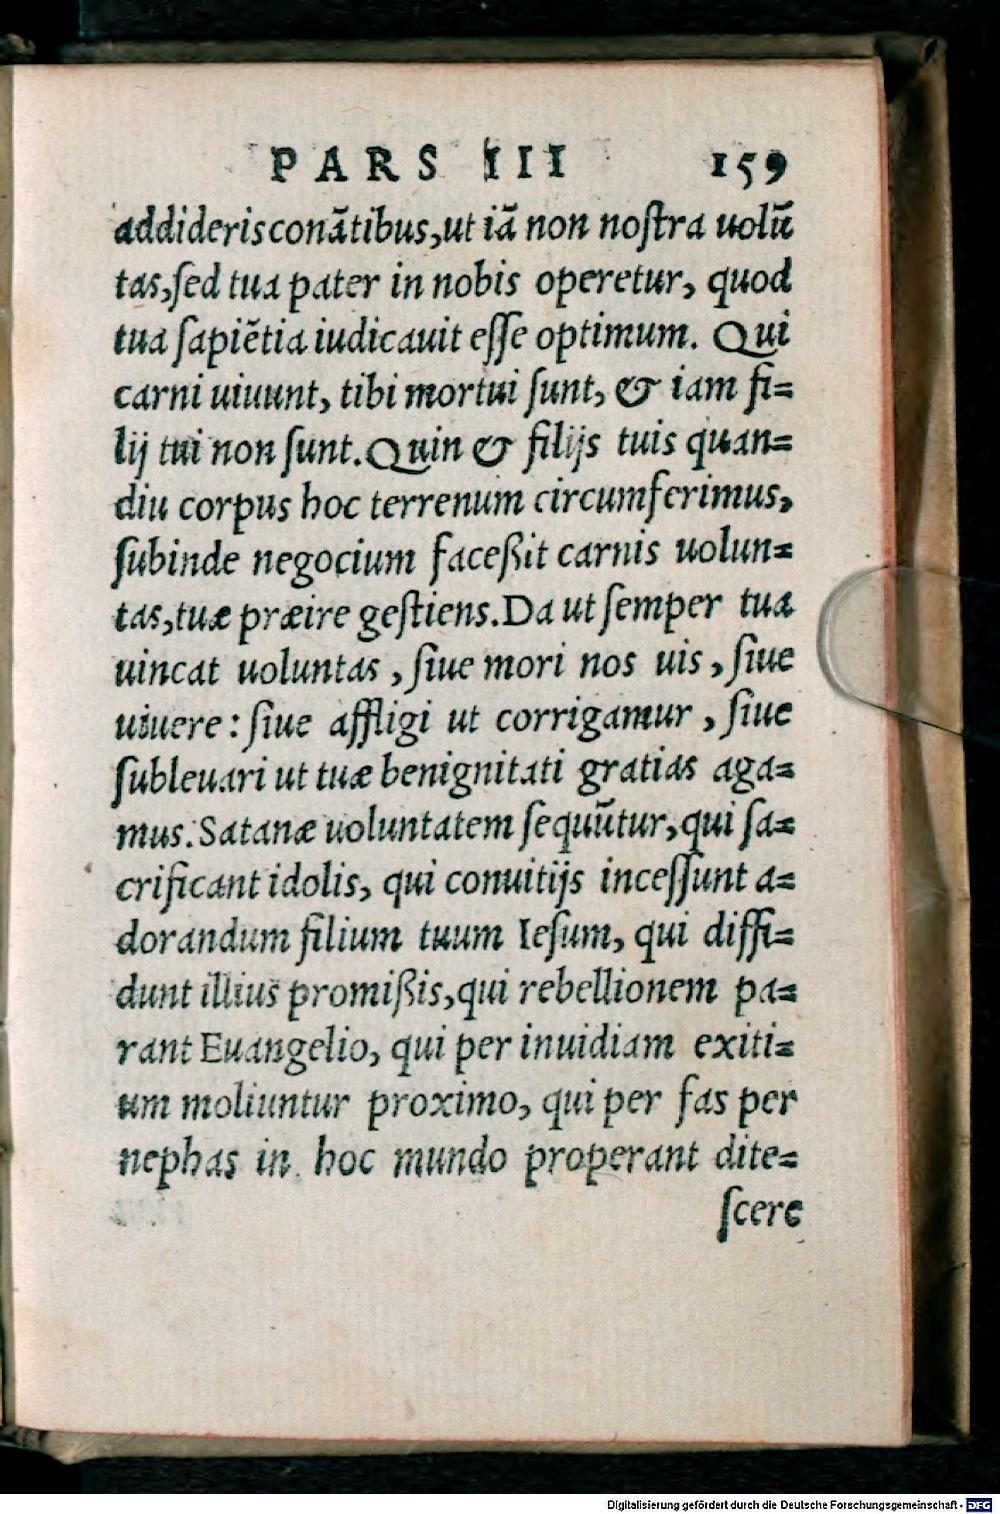 PARS III 159
addideris conãtibus, ut iã non nostra uolũ
tas, sed tua pater in nobis operetur, quod
tua sapiẽtia iudicauit esse optimum. Qui
carni uiuunt, tibi mortui sunt, & iam fi=
lij tui non sunt. Quin & filijs tuis quan=
diu corpus hoc terrenum circumferimus,
subinde negocium faceßit carnis uolun=
tas, tuæ præire gestiens. Da ut semper tua
uincat uoluntas, siue mori nos uis, siue
uiuere: siue affligi ut corrigamur, siue
subleuari ut tuæ benignitati gratias aga=
mus. Satanæ uoluntatem sequũtur, qui sa=
crificant idolis, qui conuitijs incessunt a=
dorandum filium tuum Iesum, qui diffi=
dunt illius promißis, qui rebellionem pa=
rant Euangelio, qui per inuidiam exiti=
um moliuntur proximo, qui per fas per
nephas in hoc mundo properant dite=
scere
Digitalisierung gefördert durch die Deutsche Forschungsgemeinschaft - DFG